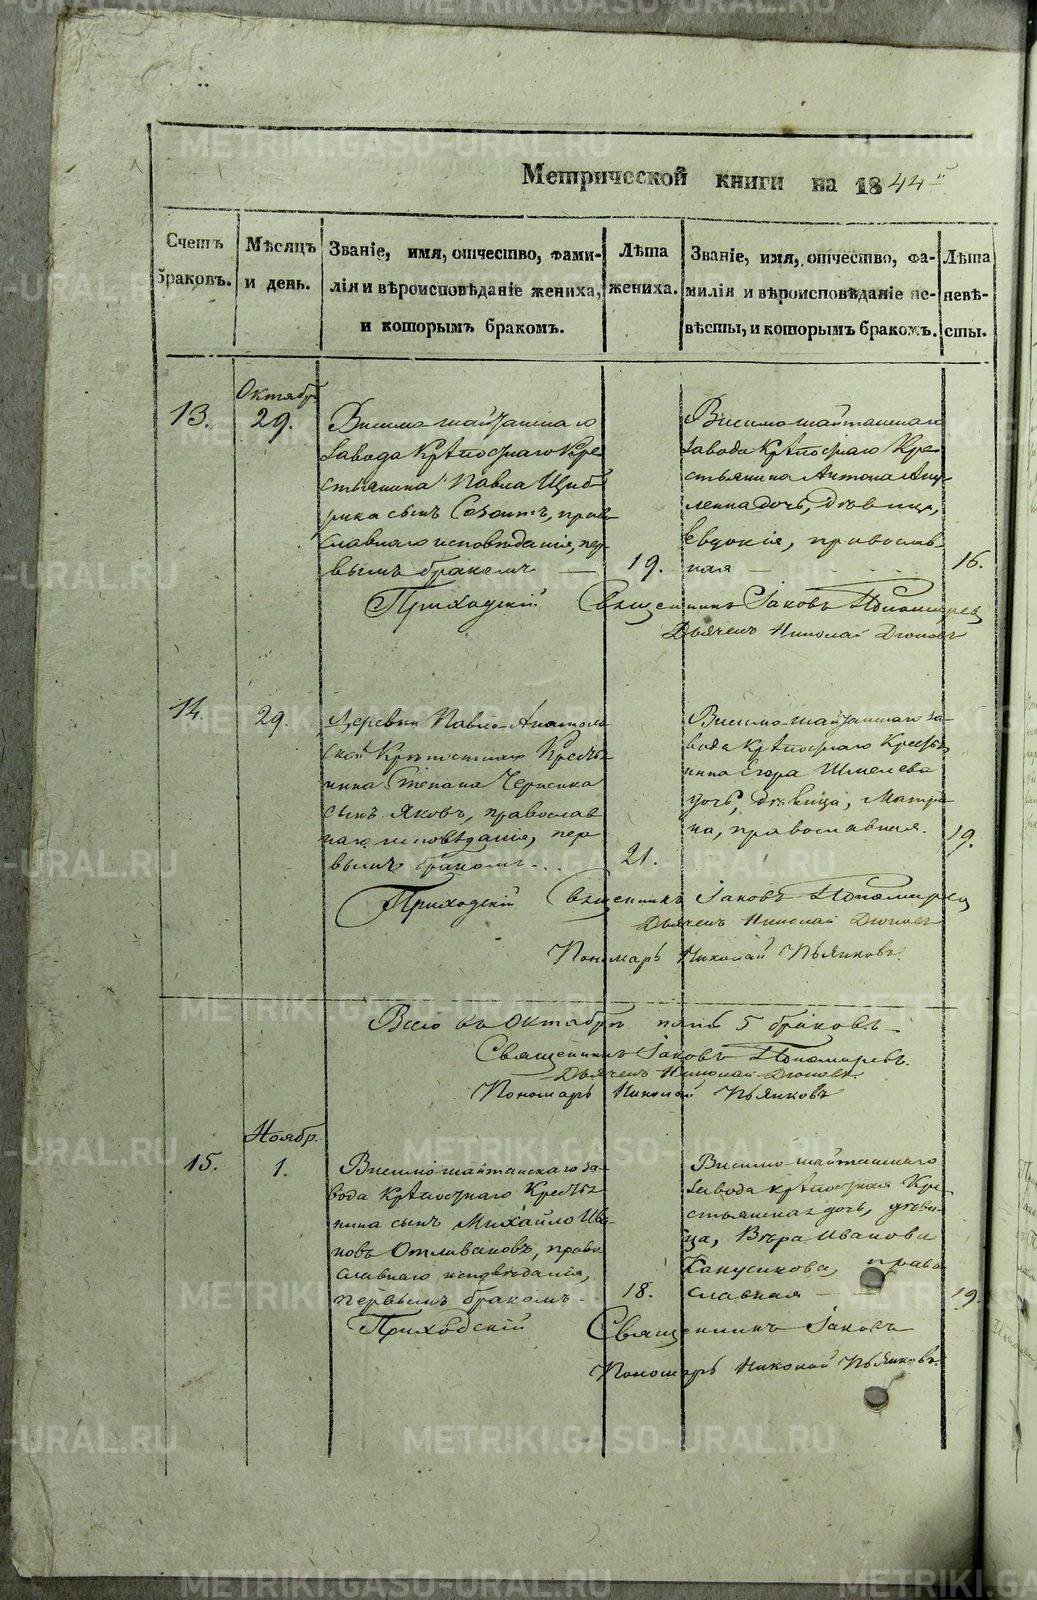 METRIKI.GASO-URAL.RU
Метрической книги на 1844й
Счетъ браковъ.
Мѣсяцъ и день.
Званіе, имя, отчество, фами-
лія и вѣроисповѣданіе жениха,
и которымъ бракомъ.
Лѣта
жениха.
Званіе, имя, отчество, фа-
милія и вѣроисповѣданіе не-
вѣсты, и которымъ бракомъ.
Лѣта
невѣ-
сты.
13.
Октябр.
29.
Висимошайтанскаго
завода крѣпостнаго Кре
стьянина Павла
сынъ Созонтъ, право
славнаго исповѣданія, пер
вымъ бракомъ
19.
Висимошайтанскаго
завода крѣпостнаго Кре-
стьянина Антона
дочь, дѣвица,
Евдокія, православ
ная
16.
Приходскій Священникъ Іаковъ Пономарев
Дьячекъ Николай
14.
29.
Деревни Павло-Анатоль
ской Крѣпостнаго Крестья
нина Степана
сынъ Яковъ, православ
наго исповѣданія, пер
вымъ бракомъ
21.
Висимошайтанскаго за-
вода крѣпостнаго Крестья
нина Егора Шмелева
дочь, дѣвица, Матре
на, православная.
19.
Приходскій Священникъ Іаковъ Пономарев
Дьячекъ Николай
Пономарь Николай Пьянковъ.
Всего въ Октябрѣ пять 5 браковъ
Священникъ Іаковъ Пономаревъ.
Дьячекъ Николай
Пономарь Николай Пьянковъ
15.
Ноябр.
1.
Висимошайтанскаго за-
вода крѣпостнаго Крестья
нина сынъ Михайло Ива
новъ Отливановъ, право
славнаго исповѣданія,
первымъ бракомъ
18.
Висимошайтанскаго
завода крѣпостная Кре-
стьянская дочь, дѣви-
ца, Вѣра Иванова
право
славная
19.
Приходскій Священникъ Іаковъ
Пономарь Николай Пьянковъ.